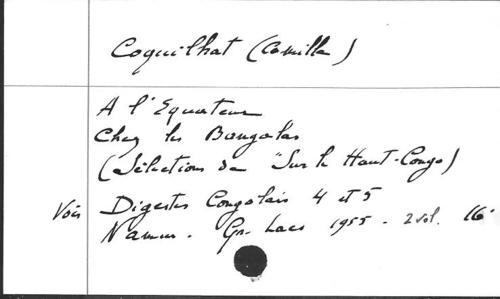 Coquilhat (Camille)
A l'Equateur
Chez les Bangalas
(Sélections de "Sur le Haut-Congo)
Voir Digestes Congolais 4 et 5
Namur. Gr. Lacs 1955 - 2 vol. 16°